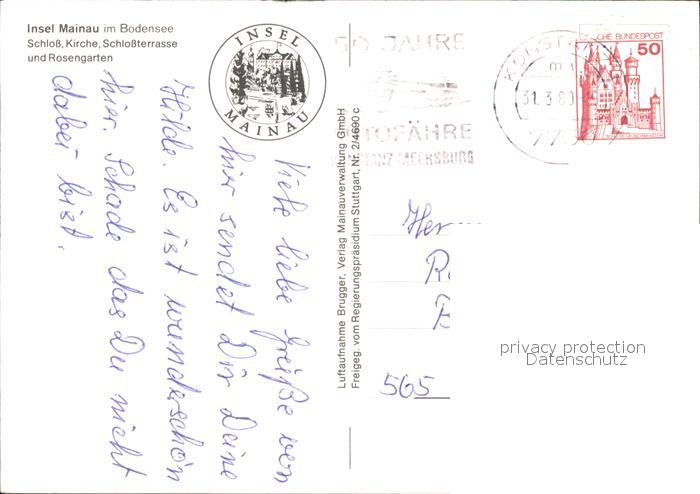 Insel Mainau im Bodensee
Schloß, Kirche, Schloßterrasse
und Rosengarten
INSEL
MAINAU
Viele liebe Grüße von
hier sendet Dir Deine
Hilde. Es ist wunderschön
hier. Schade das Du nicht
dabei bist.
Luftaufnahme Brugger, Verlag Mainauverwaltung GmbH
Freigeg. vom Regierungspräsidium Stuttgart, Nr. 2/4690 c
50 JAHRE
TOFÄHRE
TANZ-MEERSBURG
31.3.80
CHE BUNDESPOST
50
Her
R
565
privacy protection
Datenschutz